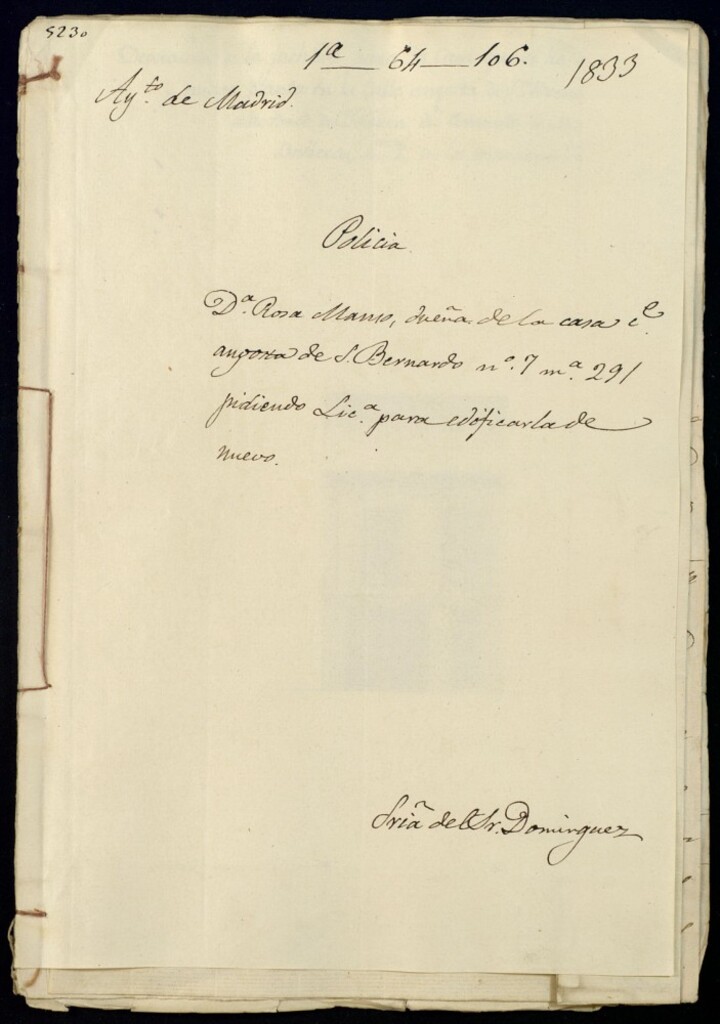 5230
1ª—64—106.
1833
Ay.to de Madrid.
Policia
D.ª Rosa Manso, dueña de la casa c.e
angosta de S. Bernardo nº. 7 m.ª 291
pidiendo Lic.ª para edificarla de
nuevo.
Sria del Sr. Dominguez